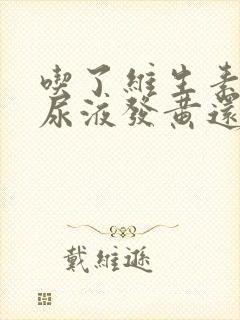 喫了維生素
尿液發黃還
戴維遜